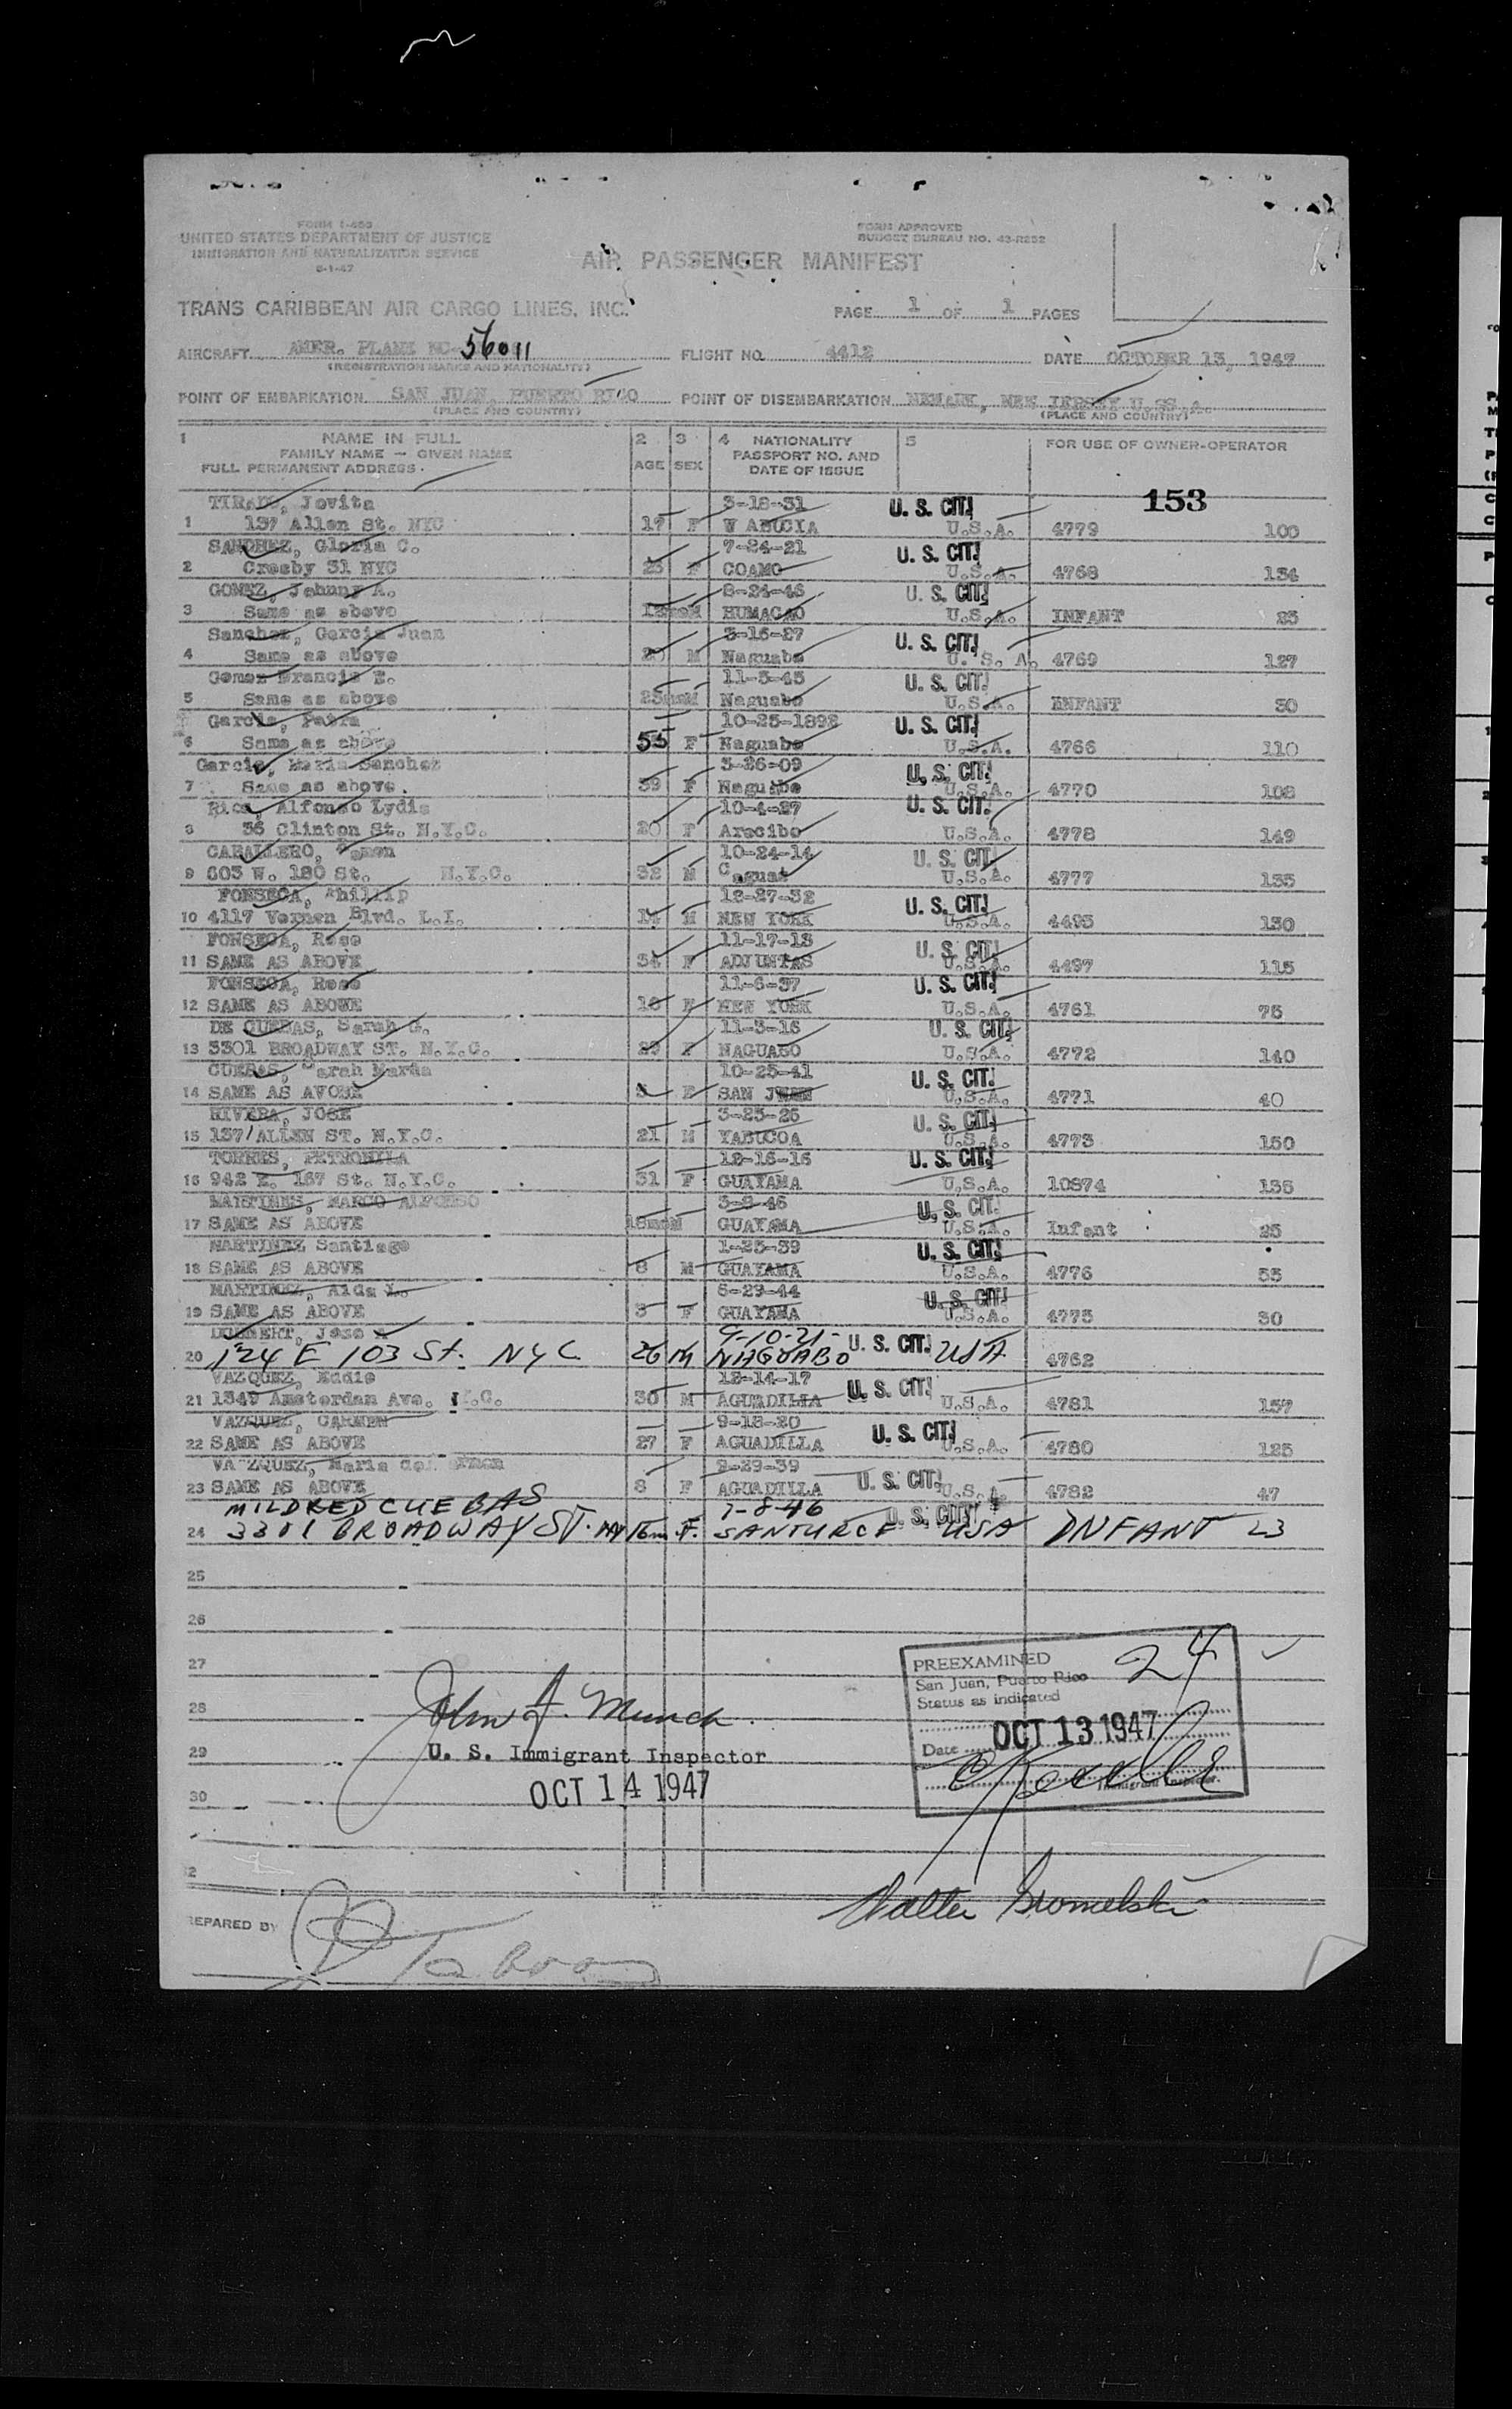 FORM I-466
UNITED STATES DEPARTMENT OF JUSTICE
IMMIGRATION AND NATURALIZATION SERVICE
6-1-47
FORM APPROVED
BUDGET BUREAU NO. 43-R252
AIR PASSENGER MANIFEST
TRANS CARIBBEAN AIR CARGO LINES, INC.
PAGE 1 OF 1 PAGES
AIRCRAFT AMER. PLANE NC-56011 FLIGHT NO. 4412 DATE OCTOBER 13, 1947
(REGISTRATION MARKS AND NATIONALITY)
POINT OF EMBARKATION SAN JUAN, PUERTO RICO POINT OF DISEMBARKATION NEWARK, NEW JERSEY U.SS.A.
(PLACE AND COUNTRY) (PLACE AND COUNTRY)
1 NAME IN FULL 2 3 4 NATIONALITY 5 FOR USE OF OWNER-OPERATOR
FAMILY NAME — GIVEN NAME PASSPORT NO. AND
FULL PERMANENT ADDRESS. AGE SEX DATE OF ISSUE
153
TIRADO, Jovita 3-18-31 U. S. CIT.
1 137 Allen St. NYC 17 F W ABUCIA U.S.A. 4779 100
SANCHEZ, Gloria C. 7-24-21 U. S. CIT.
2 Crosby 31 NYC 25 F COAMO U.S.A. 4768 134
GOMEZ, Johnny A. 8-24-46 U. S. CIT.
3 Same as above HUMACAO U.S.A. INFANT 25
Sanchez, Garcia Juan 3-16-27 U. S. CIT.
4 Same as above 20 M Naguabo U. S. A. 4769 127
Gomez Francis E. 11-5-45 U. S. CIT.
5 Same as above 23mosM Naguabo U.S.A. INFANT 30
Garcia, Petra 10-25-1892 U. S. CIT.
6 Same as above 55 F Naguabo U.S.A. 4766 110
Garcia, Maria Sanchez 3-26-09 U. S. CIT.
7 Same as above. 39 F Naguabo U.S.A. 4770 108
Rios, Alfonso Lydia 10-4-27 U. S. CIT.
8 36 Clinton St. N.Y.C. 20 F Arecibo U.S.A. 4778 149
CABALLERO, Ramon 10-24-14 U. S. CIT.
9 603 W. 180 St. N.Y.C. 32 M Caguas U.S.A. 4777 135
FONSECA, Phillip 12-27-32 U. S. CIT.
10 4117 Vernon Blvd. L.I. 14 M NEW YORK U.S.A. 4495 130
FONSECA, Rose 11-17-13 U. S. CIT.
11 SAME AS ABOVE 34 F ADJUNTAS U.S.A. 4497 115
FONSECA, Rose 11-6-37 U. S. CIT.
12 SAME AS ABOVE 10 F NEW YORK U.S.A. 4761 75
DE CUEBAS, Sarah G. 11-3-16 U. S. CIT.
13 3301 BROADWAY ST. N.Y.C. F NAGUABO U.S.A. 4772 140
CUEBAS, Sarah Maria 10-25-41 U. S. CIT.
14 SAME AS AVOBE 5 F SAN JUAN U.S.A. 4771 40
RIVERA, JOSE 3-23-26 U. S. CIT.
15 137 ALLEN ST. N.Y.C. 21 M YABUCOA U.S.A. 4773 150
TORRES, PETRONILA 12-16-16 U. S. CIT.
16 942 E. 167 St. N.Y.C. 31 F GUAYAMA U.S.A. 10874 135
MARTINEZ, MARCO ALFONSO 3-2-46 U. S. CIT.
17 SAME AS ABOVE 18mosM GUAYAMA U.S.A. Infant 25
MARTINEZ Santiago 1-25-39 U. S. CIT.
18 SAME AS ABOVE 8 M GUAYAMA U.S.A. 4776 55
MARTINEZ, Aida L. 8-29-44 U. S. CIT.
19 SAME AS ABOVE 3 F GUAYAMA U.S.A. 4775 50
Jose 9-10-21- U. S. CIT.
20 124 E 103 St. NYC 26 M NAGUABO USA 4762
VAZQUEZ, Eddie 12-14-17
21 1349 Amsterdam Ave. N.C. 30 M AGUADILLA U. S. CIT. U.S.A. 4781 157
VAZQUEZ, CARMEN 9-18-20
22 SAME AS ABOVE 27 F AGUADILLA U. S. CIT. U.S.A. 4780 125
VAZQUEZ, Maria del Carmen 9-29-39
23 SAME AS ABOVE 8 F AGUADILLA U. S. CIT. U.S.A. 4782 47
MILDRED CUEBAS 7-8-46 U. S. CIT.
24 3301 BROADWAY ST. NY 15m F. SANTURCE USA INFANT 23
25
26
27
28
29
30
PREEXAMINED 24
San Juan, Puerto Rico
Status as indicated
Date OCT 13 1947
Immigrant Inspector.
John J. Munch
U. S. Immigrant Inspector
OCT 14 1947
Walter
REPARED BY